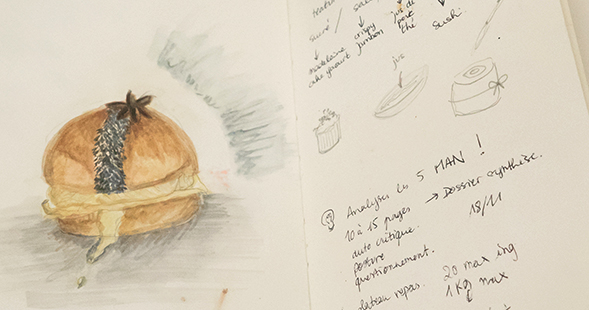 sucré /
crispy jambon
jus de poire
thé
sushi.
madeleine
cake yaourt
jus
Analyser les 5 MAN !
10 à 15 pages → Dossier synthèse.
auto critique. 18/11
posture
questionnement.
plateau repas. 20 max ing
1 Kg max